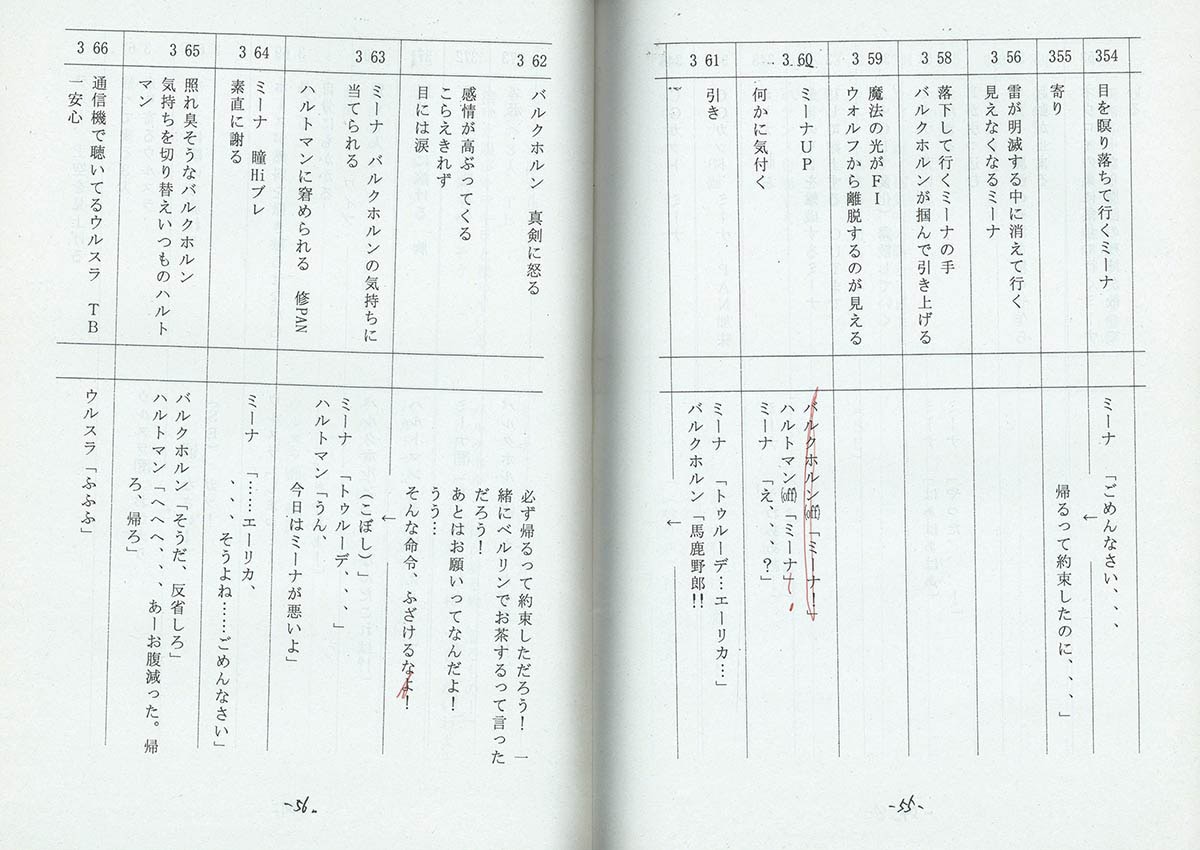 354
目を瞑り落ちて行くミーナ
ミーナ 「ごめんなさい、、、
←
355
寄り
帰るって約束したのに、、、」
3 56
雷が明滅する中に消えて行く
見えなくなるミーナ
3 58
落下して行くミーナの手
バルクホルンが掴んで引き上げる
3 59
魔法の光がFI
ウォルフから離脱するのが見える
3 60
ミーナUP
何かに気付く
バルクホルン(off)「ミーナ!」
ハルトマン(off)「ミーナ」!
ミーナ 「え、、、?」
3 61
引き
ミーナ 「トゥルーデ…エーリカ…」
バルクホルン「馬鹿野郎!!
←
-55-
3 62
バルクホルン 真剣に怒る
感情が高ぶってくる
こらえきれず
目には涙
必ず帰るって約束しただろう! 一
緒にベルリンでお茶するって言った
だろう!
あとはお願いってなんだよ!
うう…
そんな命令、ふざけるなよ!
←
(こぼし)」
3 63
ミーナ バルクホルンの気持ちに
当てられる
ハルトマンに窘められる 修PAN
ミーナ 「トゥルーデ、、、」
ハルトマン「うん、
今日はミーナが悪いよ」
3 64
ミーナ 瞳Hiブレ
素直に謝る
ミーナ 「……エーリカ、
、、、そうよね……ごめんなさい」
3 65
照れ臭そうなバルクホルン
気持ちを切り替えいつものハルト
マン
バルクホルン「そうだ、反省しろ」
ハルトマン「へへへ、、、あーお腹減った。帰
ろ、帰ろ」
3 66
通信機で聴いてるウルスラ TB
一安心
ウルスラ「ふふふ」
-56-